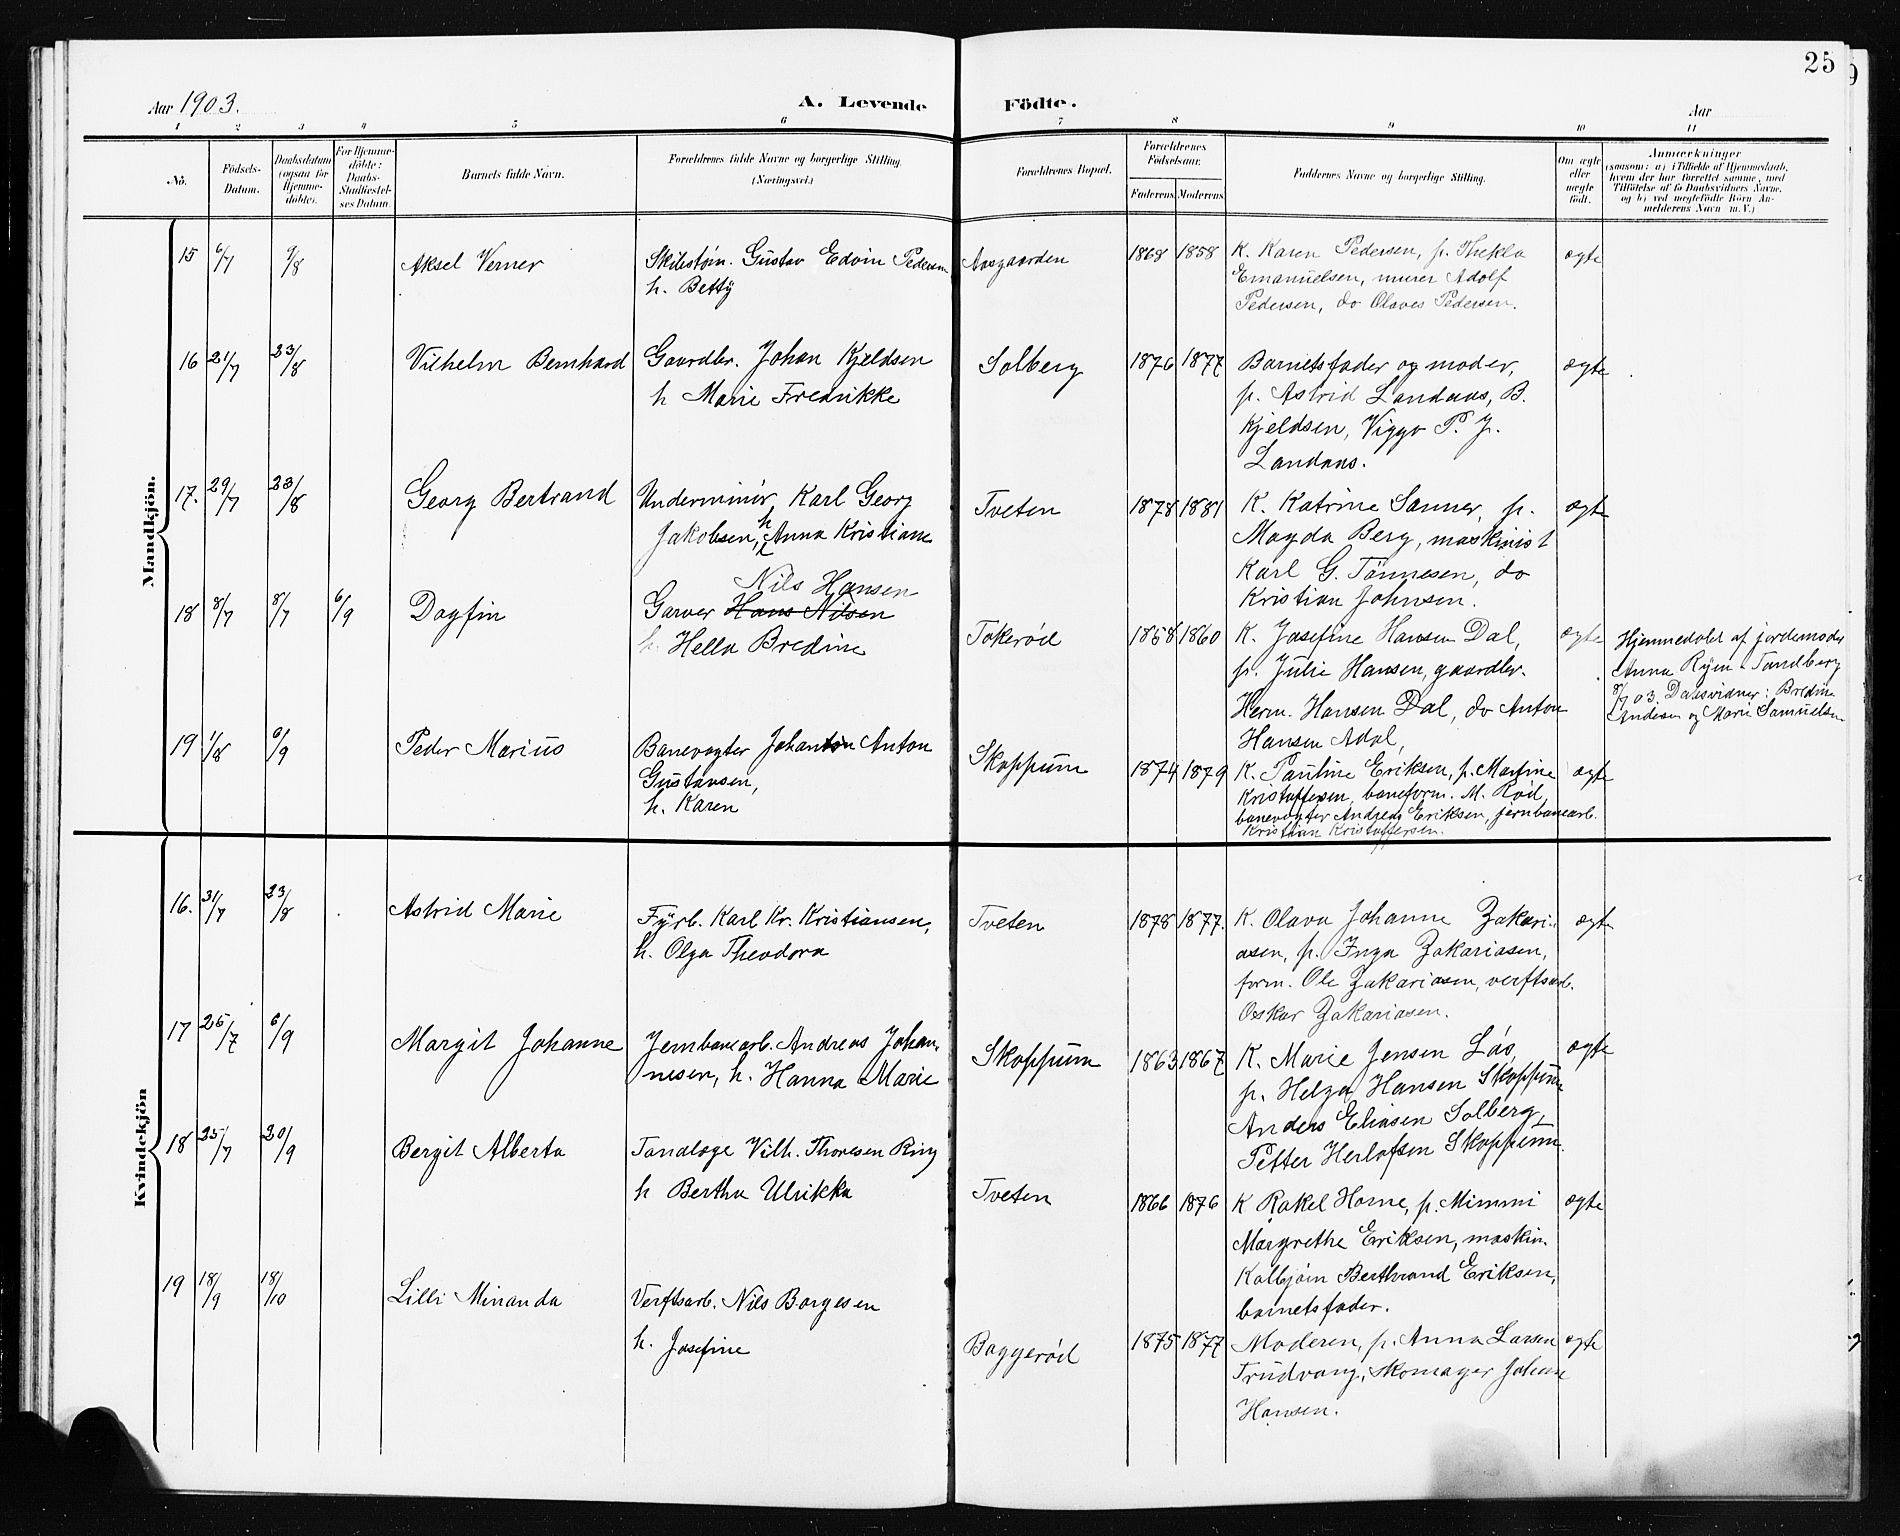 25
Aar 1903.
A. Levende Födte.
Aar
1 2 3 4 5 6 7 8 9 10 11
No.
Födsels-
Datum.
Daabsdatum
(ogsaa for
Hjemme-
döbte).
For Hjemme-
döbte:
Daabs-
Stadfæstel-
ses Datum.
Barnets fulde Navn.
Forældrenes fulde Navne og borgerlige Stilling.
(Næringsvei.)
Forældrenes Bopæl.
Forældrenes
Födselsaar.
Faderens Moderens
Faddernes Navne og borgerlige Stilling.
Om ægte
eller
uægte
födt.
Anmærkninger
(saasom: a) i Tilfælde af Hjemmedaab,
hvem der har forrettet samme, med
Tilföielse af to Daabsvidners Navne,
og b) ved uægtefödte Börn An-
melderens Navn m. V.)
Mandkjön.
15 6/7 9/8 Aksel Verner
Skibstøm. Gustav Edvin Pedersen
h. Betty
Aasgaarden 1868 1858
K. Karen Pedersen, p. Thekla
Emanuelsen, murer Adolf
Pedersen, do Olaves Pedersen.
ægte
16 21/7 23/8 Vilhelm Bernhard
Gaardbr. Johan Kjeldsen
h Marie Fredrikke
Solberg 1876 1877
Barnets fader og moder,
p. Astrid Landaas, B.
Kjeldsen, Viggo P. J.
Landaas.
ægte
17. 29/7 23/8 Georg Bertrand
Underminør Karl Georg
Jakobsen, h Anna Kristiane
Tveten 1878 1881
K. Katrine Sanner, p.
Magda Berg, maskinist
Karl G. Tønnesen, do
Kristian Johnsen.
ægte
18 8/7 8/7 6/9 Dagfin
Nils Hansen
Garver Hans Nilsen
h. Hella Bredine
Tokerød 1858 1860
K. Josefine Hansen Dal,
p. Julie Hansen, gaardbr.
Herm. Hansen Dal, do Anton
Hansen Adal,
ægte
Hjemmedøbt af jordemoder
Anna Ryen Tandberg
8/7 03. Daabsvidner: Bredine
og Marie Samuelsen
19 1/8 6/9 Peder Marius
Banevogter Johan Anton
Gustavsen,
h. Karen
Skoppum 1874 1879
K. Pauline Eriksen, p. Martine
Kristoffersen, baneform. M. Röd,
banevogter Andreas Eriksen, jernbanearb.
Kristian Kristoffersen.
ægte
Kvindekjön
16. 31/7 23/8 Astrid Marie
Fyrb. Karl Kr. Kristiansen,
h. Olga Theodora
Tveten 1878 1877.
K. Olava Johanne Zakari-
asen, p. Inga Zakariasen,
form. Ole Zakariasen, verftsarb.
Oskar Zakariasen.
ægte
17 25/7 6/9 Margit Johanne
Jernbanearb. Andreas Johan-
nesen, h. Hanna Marie
Skoppum 1863 1867
K. Marie Jensen Lás,
p. Helga Hansen Skoppum
Anders Eliasen Solberg,
Petter Herlofsen Skoppum.
ægte
18 25/7 20/9 Bergit Alberta
Tandlæge Vilh. Thoresen Ring
h Bertha Ulrikka
Tveten 1866 1876
K Rakel Horne, p. Mimmi
Margrethe Eriksen, maskin.
Kolbjørn Berthrand Eriksen,
barnets fader.
ægte
19 18/9 18/10 Lilli Miranda
Verftsarb. Nils Borgesen
h. Josefine
Baggerød 1875 1877
Moderen, p. Anna Larsen
Trudvang, Skomager Johan
Hansen.
ægte